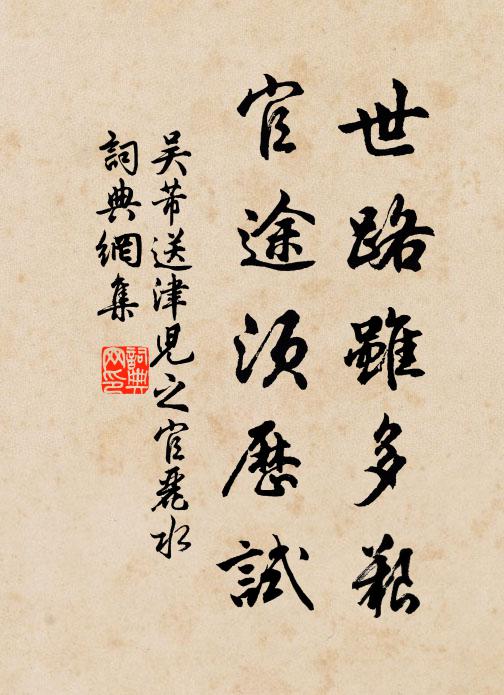 世路雖多艱
官途須歷試
吴芾送津兒之官麗水
詞典網集
詞典
网印